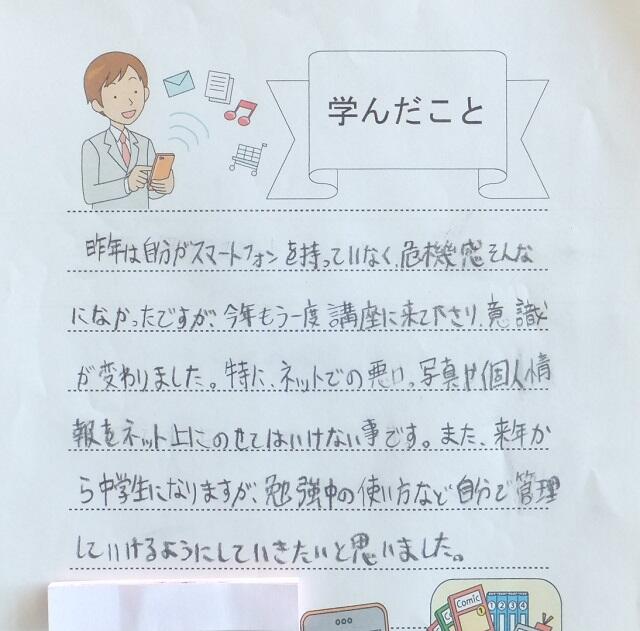 学んだこと
昨年は自分がスマートフォンを持っていなく、危機感そんな
になかったですが、今年もう一度講座に来て下さり、意識
が変わりました。特に、ネットでの悪口。写真や個人情
報をネット上にのせてはいけない事です。また、来年か
ら中学生になりますが、勉強中の使い方など自分で管理
していけるようにしていきたいと思いました。
Comic
1
1 2 3 4